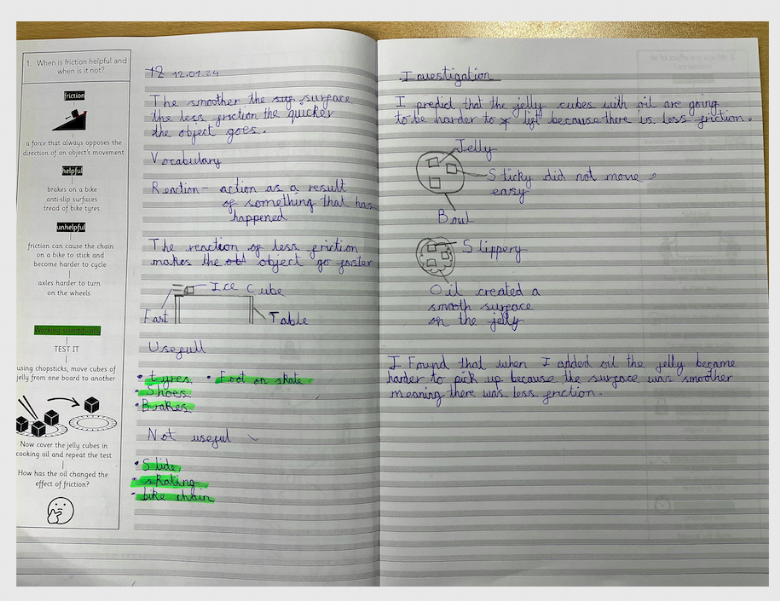 1. When is friction helpful and
when is it not?
friction
a force that always opposes the
direction of an object's movement
helpful
brakes on a bike
anti-slip surfaces
tread of bike tyres
unhelpful
friction can cause the chain
on a bike to stick and
become harder to cycle
axles harder to turn
on the wheels
Working scientifically
TEST IT
using chopsticks, move cubes of
jelly from one board to another
Now cover the jelly cubes in
cooking oil and repeat the test
How has the oil changed the
effect of friction?
12.01.24
The smoother the surface
the less friction the quicker
the object goes.
Vocabulary
Reaction - action as a result
of something that has
happened
The reaction of less friction
makes the object go faster
Ice Cube
Fast
Table
Usefull
• tyres • Foot on skate
• Shoes
• Brakes
Not useful
• Slide
• skating
• bike chain
Investigation
I predict that the jelly cubes with oil are going
to be harder to lift because there is less friction.
Jelly
Sticky did not move
easy
Boul
Slippery
Oil created a
smooth surface
on the jelly
I Found that when I added oil the jelly became
harder to pick up because the surface was smoother
meaning there was less friction.